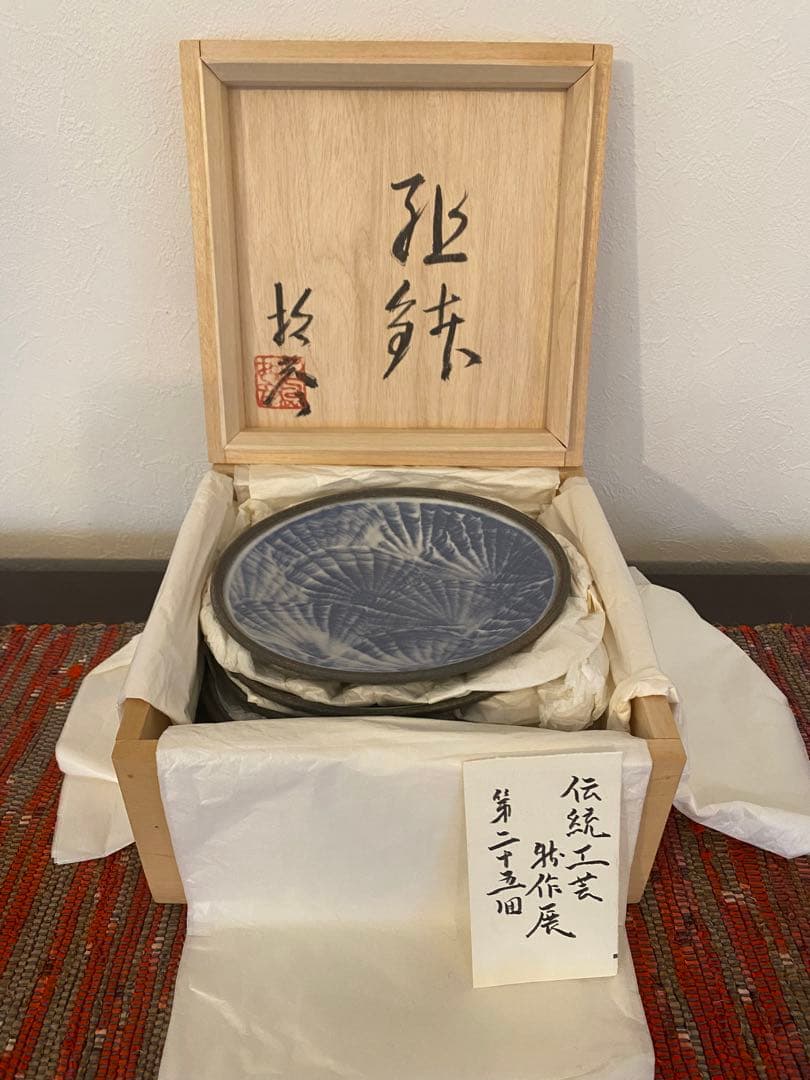 組鉢
伝統工芸
新作展
第二十五回